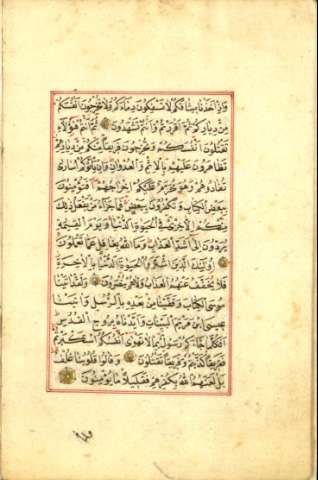 وَإِذْ أَخَذْنَا مِيثَاقَكُمْ لَا تَسْفِكُونَ دِمَاءَكُمْ وَلَا تُخْرِجُونَ أَنْفُسَكُمْ
مِنْ دِيَارِكُمْ ثُمَّ أَقْرَرْتُمْ وَأَنْتُمْ تَشْهَدُونَ ثُمَّ أَنْتُمْ هَؤُلَاءِ
تَقْتُلُونَ أَنْفُسَكُمْ وَتُخْرِجُونَ فَرِيقًا مِنْكُمْ مِنْ دِيَارِهِمْ
تَظَاهَرُونَ عَلَيْهِمْ بِالْإِثْمِ وَالْعُدْوَانِ وَإِنْ يَأْتُوكُمْ أُسَارَى
تُفَادُوهُمْ وَهُوَ مُحَرَّمٌ عَلَيْكُمْ إِخْرَاجُهُمْ أَفَتُؤْمِنُونَ
بِبَعْضِ الْكِتَابِ وَتَكْفُرُونَ بِبَعْضٍ فَمَا جَزَاءُ مَنْ يَفْعَلُ ذَلِكَ
مِنْكُمْ إِلَّا خِزْيٌ فِي الْحَيٰوةِ الدُّنْيَا وَيَوْمَ الْقِيٰمَةِ
يُرَدُّونَ إِلَى أَشَدِّ الْعَذَابِ وَمَا اللَّهُ بِغَافِلٍ عَمَّا تَعْمَلُونَ
أُولَئِكَ الَّذِينَ اشْتَرَوُا الْحَيٰوةَ الدُّنْيَا بِالْآخِرَةِ
فَلَا يُخَفَّفُ عَنْهُمُ الْعَذَابُ وَلَا هُمْ يُنْصَرُونَ وَلَقَدْ آتَيْنَا
مُوسَى الْكِتَابَ وَقَفَّيْنَا مِنْ بَعْدِهِ بِالرُّسُلِ وَآتَيْنَا
عِيسَى ابْنَ مَرْيَمَ الْبَيِّنَاتِ وَأَيَّدْنَاهُ بِرُوحِ الْقُدُسِ
أَفَكُلَّمَا جَاءَكُمْ رَسُولٌ بِمَا لَا تَهْوَى أَنْفُسُكُمُ اسْتَكْبَرْتُمْ
فَفَرِيقًا كَذَّبْتُمْ وَفَرِيقًا تَقْتُلُونَ وَقَالُوا قُلُوبُنَا غُلْفٌ
بَلْ لَعَنَهُمُ اللَّهُ بِكُفْرِهِمْ فَقَلِيلًا مَا يُؤْمِنُونَ